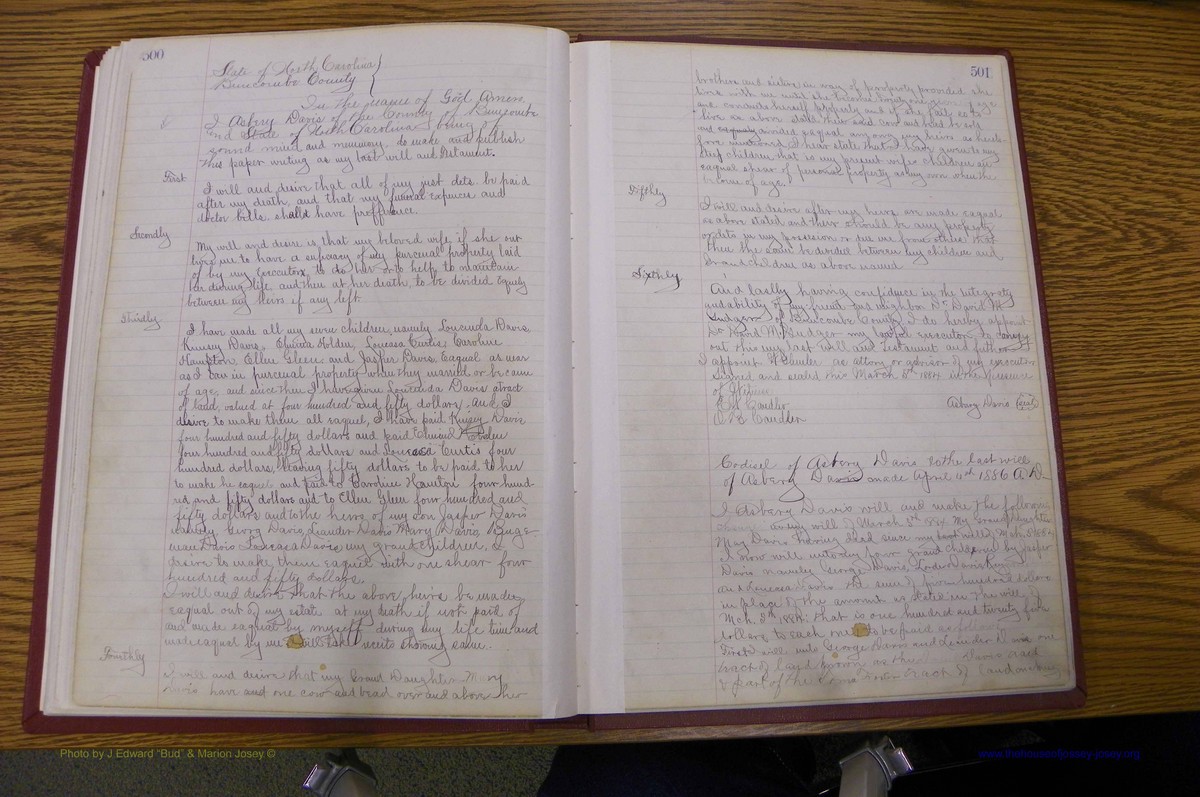 500
State of North Carolina
Buncombe County
In the name of God Amen
I Asbery Davis of the County of Buncombe
and State of North Carolina being of
sound mind and memmory. do make and publish
this paper writing as my last will and Testament.
First
I will and desire that all of my just dets. be paid
after my death, and that my funeral expences and
doctor bills should have
Secondly
My will and desire is that my beloved wife, if she out
lives me to have a of my perceual property laid
of by my executor, to do her or to help to maintain
her during life, and then at her death, to be divided equely
between my heirs if any left
Thirdly
I have made all my seven children, namely Loucinda Davis
Kinsey Davis, Edward Holden, Louessa Curtis, Caroline
Hampton, Ellen Glenn and Jasper Davis Eaqual as near
as I can in perceual property when they married or became
of age, and since then I have given Loucinda Davis a tract
of land, valued at four hundred and fifty dollars, and I
desire to make them all eaquel, I have paid Kinsey Davis
four hundred and fifty dollars and paid Edward Holden
four hundred and fifty dollars and Louessa Curtis four
hundred dollars, leaving fifty dollars to be paid to her
to make he eaquel and paid to Caroline Hamton four hund
red and fifty dollars and to Ellen Glen four hundred and
fifty dollars and to the heirs of my son Jasper Davis
namely Georg Davis, Lander Davis Mary Davis,
Davis Louessa Davis my grand children, I
desire to make them eaquel with one shear four
hundred and fifty dollars.
I will and desire that the above heirs be made
eaqual out of my estate at my death if not paid of
and made eaqual by myself during my life time and
made eaquel by me will take recits showing same.
Fourthly
I will and desire that my Grand Daughter Mary
Davis have and one cow and bead over and above her
501
brothers and sisters in way of property provided she
live with me until she become twenty one years of age
and conducts herself properly and if she fails to
live as above state then said cow and bead be sold
and divided eaqual among my heirs as here
fore mentioned. I hear state that I have
children that is my present wifes children an
eaqual shear of personal property as my own when they
become of age.
Fifthly
I will and desire after my heirs are made eaqual
as above stated and their should be any property
or dets in my possession or due me from others that
then the same be divided between my children and
Grand children as above named
Sixthly
And lastly having confidence in the integrety
and ability of my friend and neighbor Dr David M
Gudger of Buncombe County, I do hereby appoint
Dr David M Gudger my executor to carry
out this my last will and testament and futher
I appoint Candler as attorny of my executor
signed and sealed this March 8th 1884 in the presence
of Witness
Candler
Asbury Davis (Seal)
Candler
Codisel of Asbery Davis to the last will
of Asbery Davis made April 4th 1886 A.D.
I Asbery Davis will and make the following
change in my will of March 8th 1884 My Grand Daughter
May Davis having died since my will, Mch 8th 1884
I now will unto my four grand children by Jasper
Davis namely George Davis, Lander Davis
and Louessa Davis the sum of five hundred dollars
in place of the amount as stated in the will of
Mch. 8th 1884: that is one hundred and twenty five
dollars to each one to be paid as follows
First I will unto George Davis and Leander Davis one
tract of land known as the Davis land
& part of the tract of land on
Photo by J Edward "Bud" & Marion Josey ©
www.thehouseofjossey-josey.org